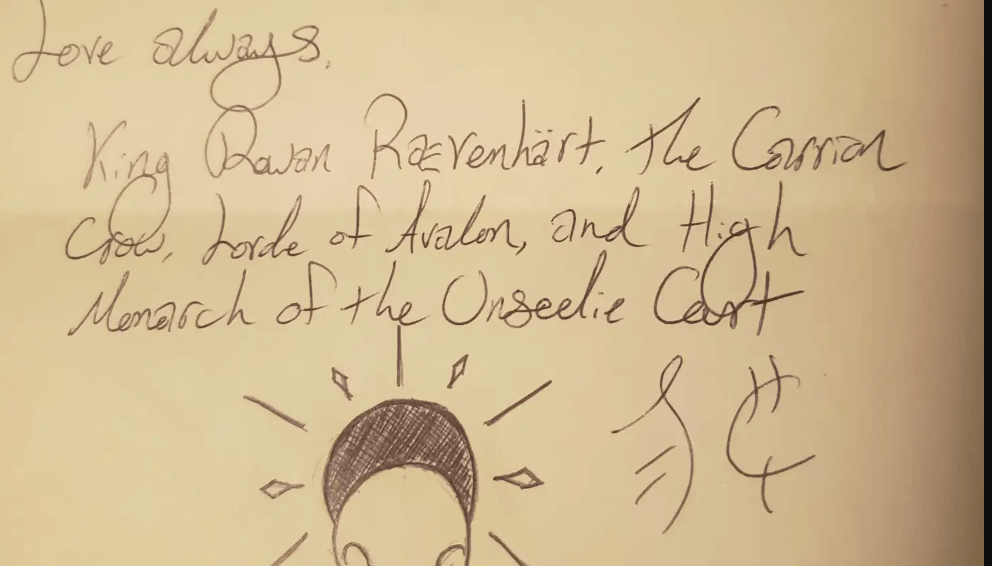 Love always,
King Rowan RæVenhärt, the Carrion
Crow, Lorde of Avalon, and High
Monarch of the Unseelie Court